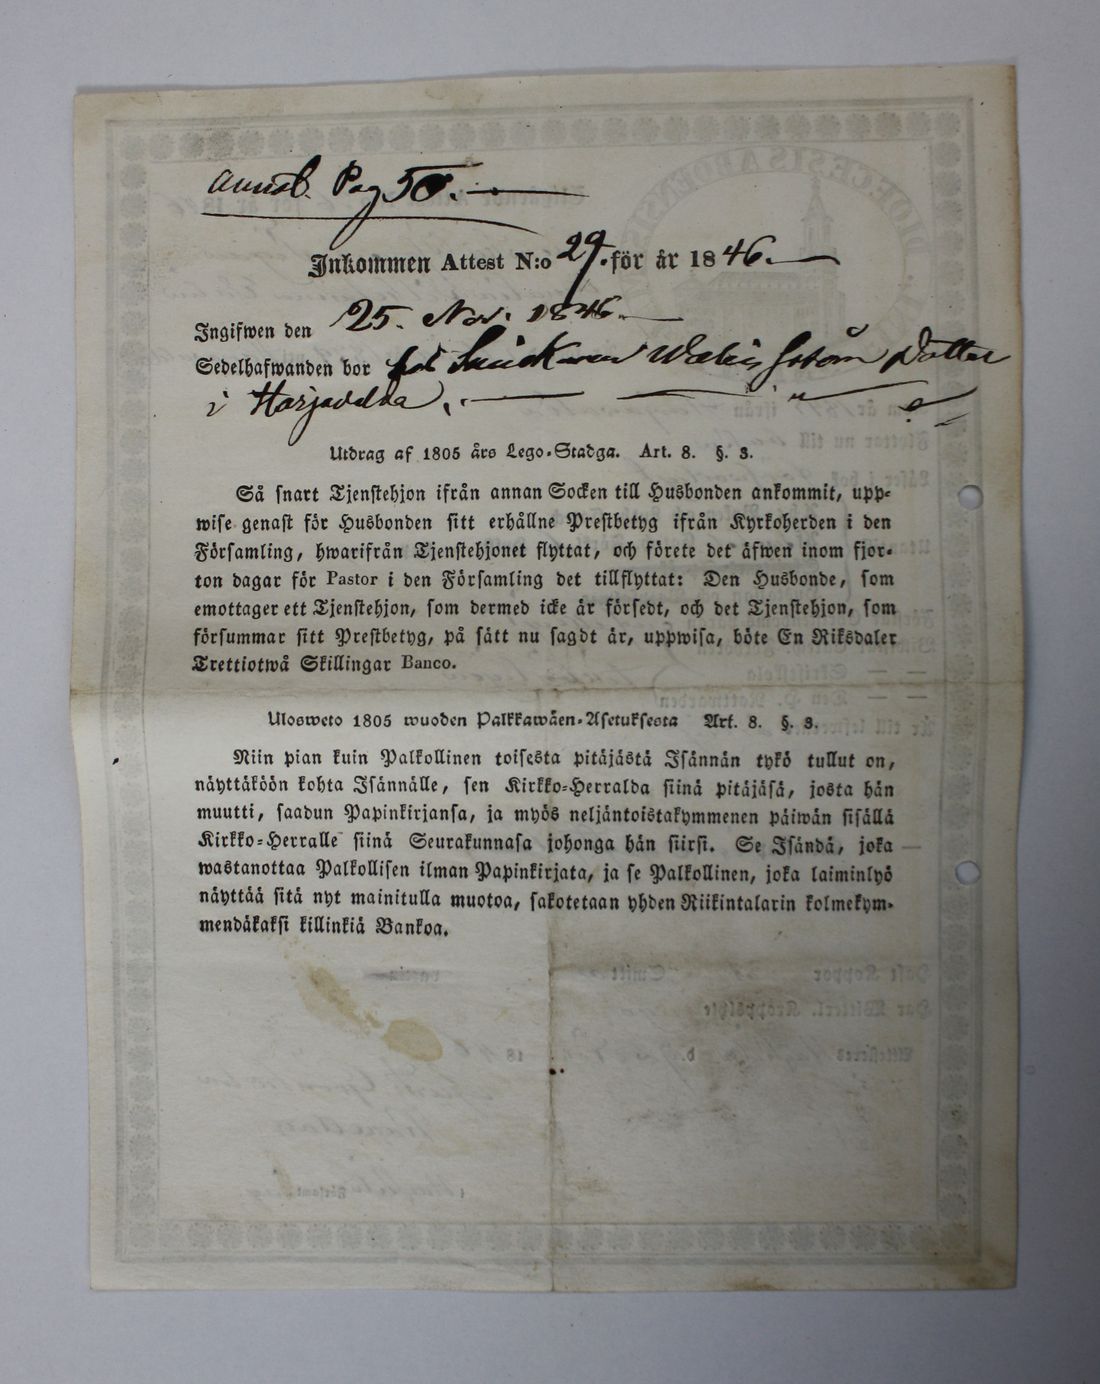 Pag 50.
Inkommen Attest N:o 29. för år 1846.
Ingifwen den 25. Nov. 1846.
Sedelhafwanden bor hos Dotter
i Harjavalda
Utdrag af 1805 års Lego-Stadga. Art. 8. §. 3.
Så snart Tjenstehjon ifrån annan Socken till Husbonden ankommit, upp-
wise genast för Husbonden sitt erhållne Prestbetyg ifrån Kyrkoherden i den
Församling, hwarifrån Tjenstehjonet flyttat, och förete det äfwen inom fjor-
ton dagar för Pastor i den Församling det tillflyttat: Den Husbonde, som
emottager ett Tjenstehjon, som dermed icke är försedt, och det Tjenstehjon, som
försummar sitt Prestbetyg, på sätt nu sagdt är, uppwisa, böte En Riksdaler
Trettiotwå Skillingar Banco.
Ulosweto 1805 wuoden Palkkawäen-Asetuksesta Art. 8. §. 3.
Niin pian kuin Palkollinen toisesta pitäjästä Isännän tykö tullut on,
näyttäköön kohta Isännälle, sen Kirkko-Herralda siinä pitäjäsä, josta hän
muutti, saadun Papinkirjansa, ja myös neljäntoistakymmenen päiwän sisällä
Kirkko-Herralle siinä Seurakunnasa johonga hän siirsi. Se Isändä, joka
wastanottaa Palkollisen ilman Papinkirjata, ja se Palkollinen, joka laiminlyö
näyttää sitä nyt mainitulla muotoa, sakotetaan yhden Riikintalarin kolmekym-
mendäkaksi killinkiä Bankoa.